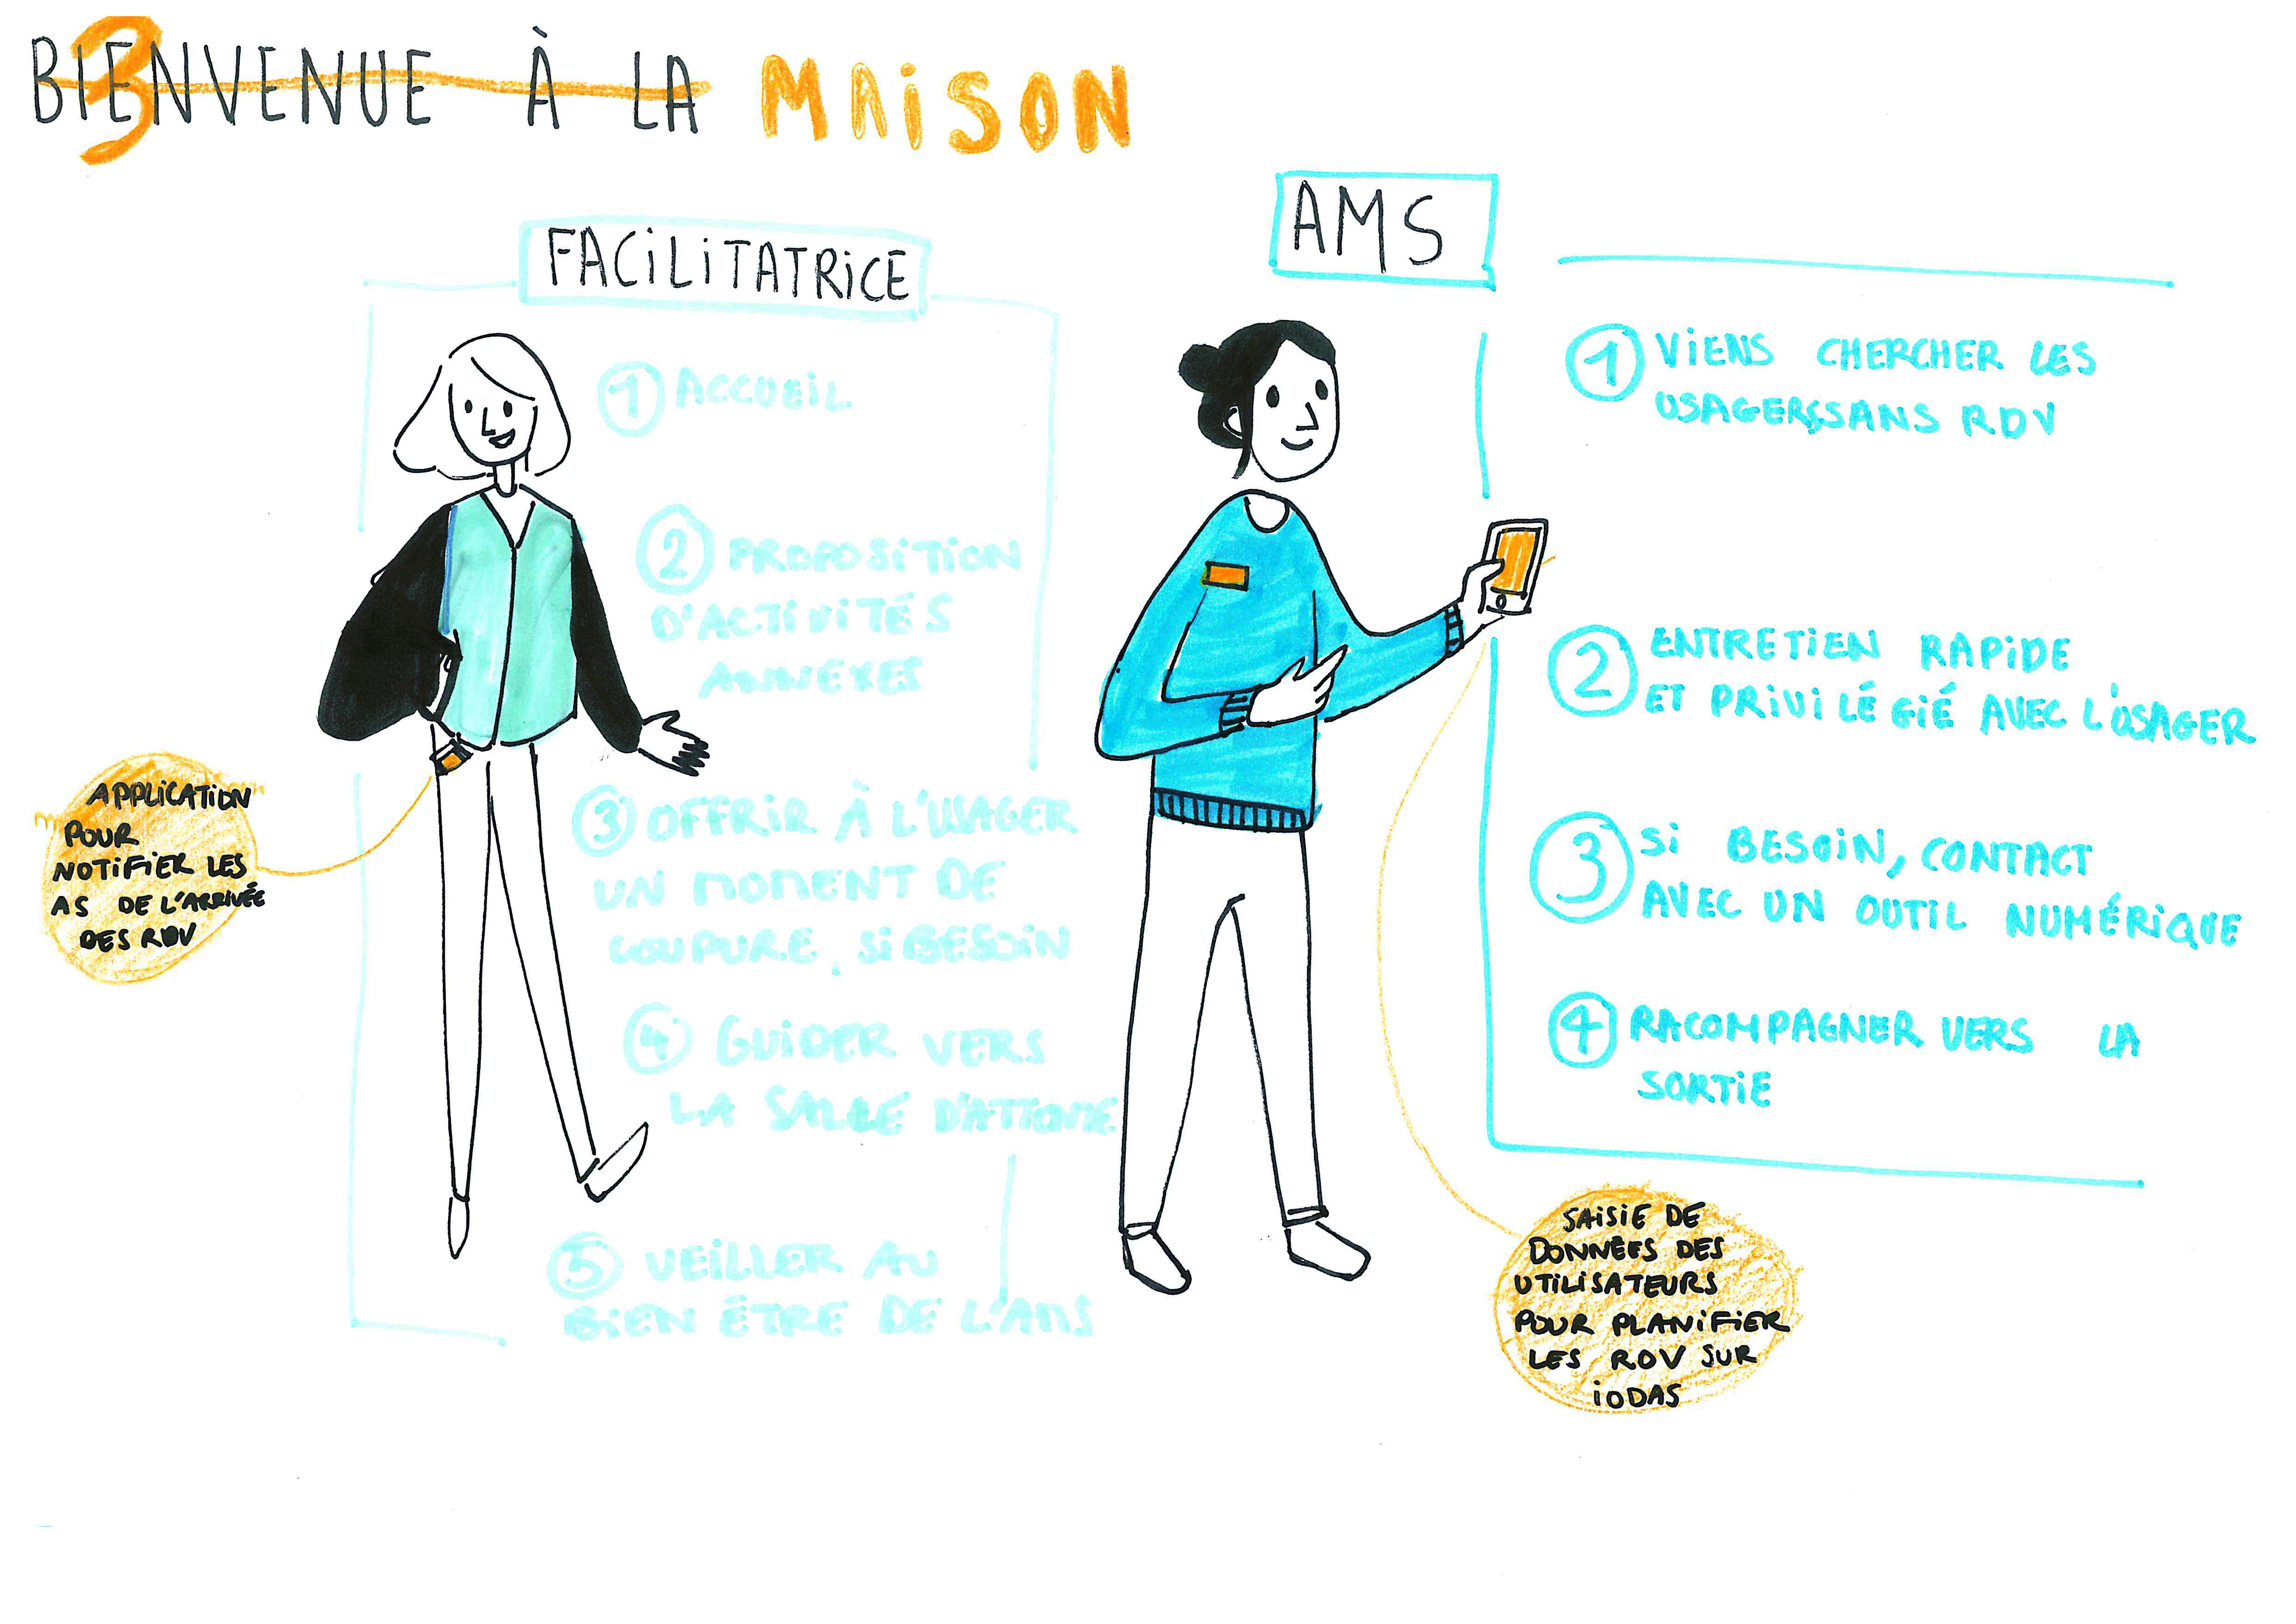 3
BIENVENUE À LA MAISON
FACILITATRICE
1 ACCUEIL
2 PROPOSITION
D'ACTIVITÉS
ANNEXES
3 OFFRIR À L'USAGER
UN MOMENT DE
COUPURE, SI BESOIN
4 GUIDER VERS
LA SALLE D'ATTENTE
5 VEILLER AU
BIEN ÊTRE DE L'AMS
APPLICATION
POUR
NOTIFIER LES
AS DE L'ARRIVÉE
DES RDV
AMS
1 VIENS CHERCHER LES
USAGERS, SANS RDV
2 ENTRETIEN RAPIDE
ET PRIVILÉGIÉ AVEC L'USAGER
3 SI BESOIN, CONTACT
AVEC UN OUTIL NUMÉRIQUE
4 RACOMPAGNER VERS LA
SORTIE
SAISIE DE
DONNÉES DES
UTILISATEURS
POUR PLANIFIER
LES RDV SUR
IODAS